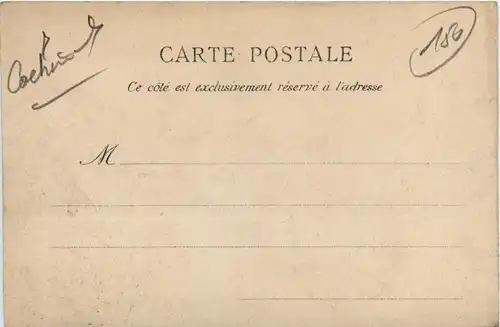 CARTE POSTALE
186
Ce côté est exclusivement réservé à l'adresse
M